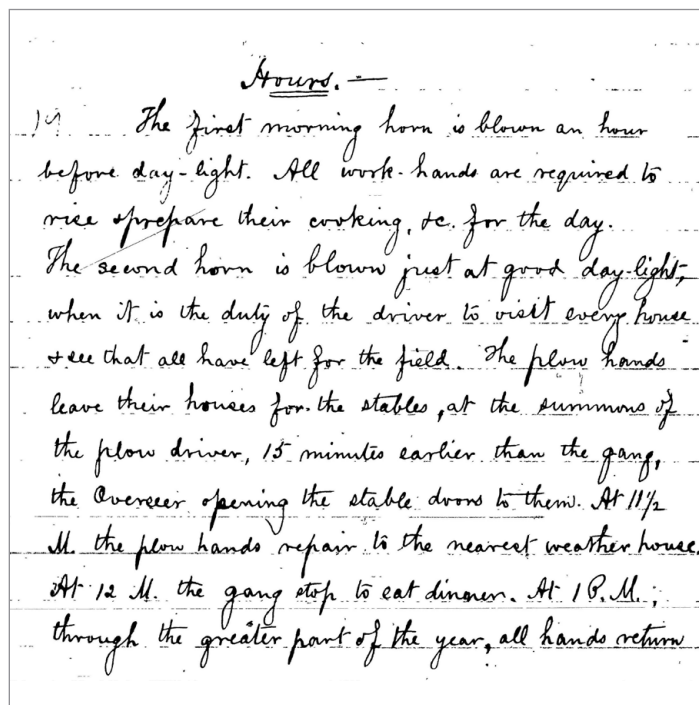 Hours. —
The first morning horn is blown an hour
before day-light. All work-hands are required to
rise & prepare their cooking, &c. for the day.
The second horn is blown just at good day-light,
when it is the duty of the driver to visit every house
& see that all have left for the field. The plow hands
leave their houses for the stables, at the summons of
the plow driver, 15 minutes earlier than the gang,
the Overseer opening the stable doors to them. At 11½
M. the plow hands repair to the nearest weather house.
At 12 M. the gang stop to eat dinner. At 1 P.M.;
through the greater part of the year, all hands return